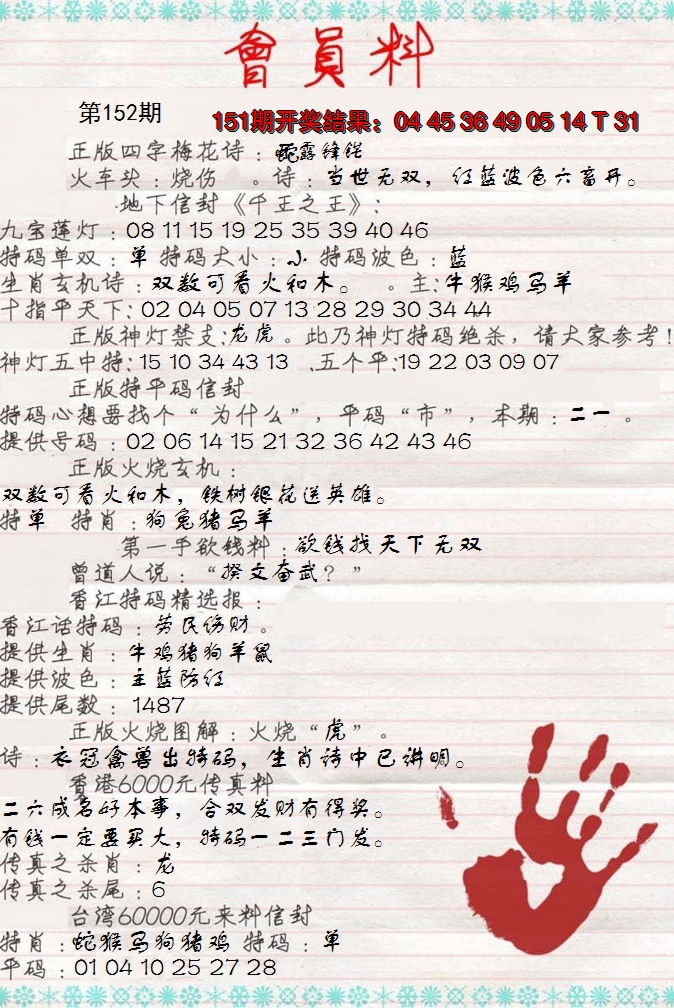 會員料
第152期
151期开奖结果：04 45 36 49 05 14 T 31
正版四字梅花诗：蛇露锋铓
火车头：烧伤 。诗：当世无双，红蓝波色六畜开。
地下信封《千王之王》：
九宝莲灯：08 11 15 19 25 35 39 40 46
特码单双：单 特码大小：小 特码波色：蓝
生肖玄机诗：双数可看火和木。 。主：牛猴鸡马羊
十指平天下：02 04 05 07 13 28 29 30 34 44
正版神灯禁支：龙虎。此乃神灯特码绝杀，请大家参考！
神灯五中特：15 10 34 43 13 .五个平：19 22 03 09 07
正版特平码信封
特码心想要找个“为什么”，平码“市”，本期：二一 。
提供号码：02 06 14 15 21 32 36 42 43 46
正版火烧玄机：
双数可看火和木，铁树银花送英雄。
特单 特肖：狗兔猪马羊
第一手欲钱料：欲钱找天下无双
曾道人说：“揆文奋武？”
香江特码精选报：
香江话特码：劳民伤财。
提供生肖：牛鸡猪狗羊鼠
提供波色：主蓝防红
提供尾数：1487
正版火烧图解：火烧“虎”。
诗：衣冠禽兽出特码，生肖诗中已讲明。
香港6000元传真料
二六成名好本事，合双发财有得奖。
有钱一定要买大，特码一二三门发。
传真之杀肖：龙
传真之杀尾：6
台湾60000元来料信封
特肖：蛇猴马狗猪鸡 特码：单
平码：01 04 10 25 27 28